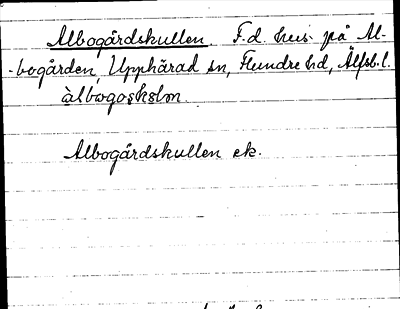 Albogårdskullen. F.d. hus på Al-
-bogården, Upphärad sn, Flundre hd, Älfsb.l.
àlbωgoskslơn.
Albogårdskullen ek.